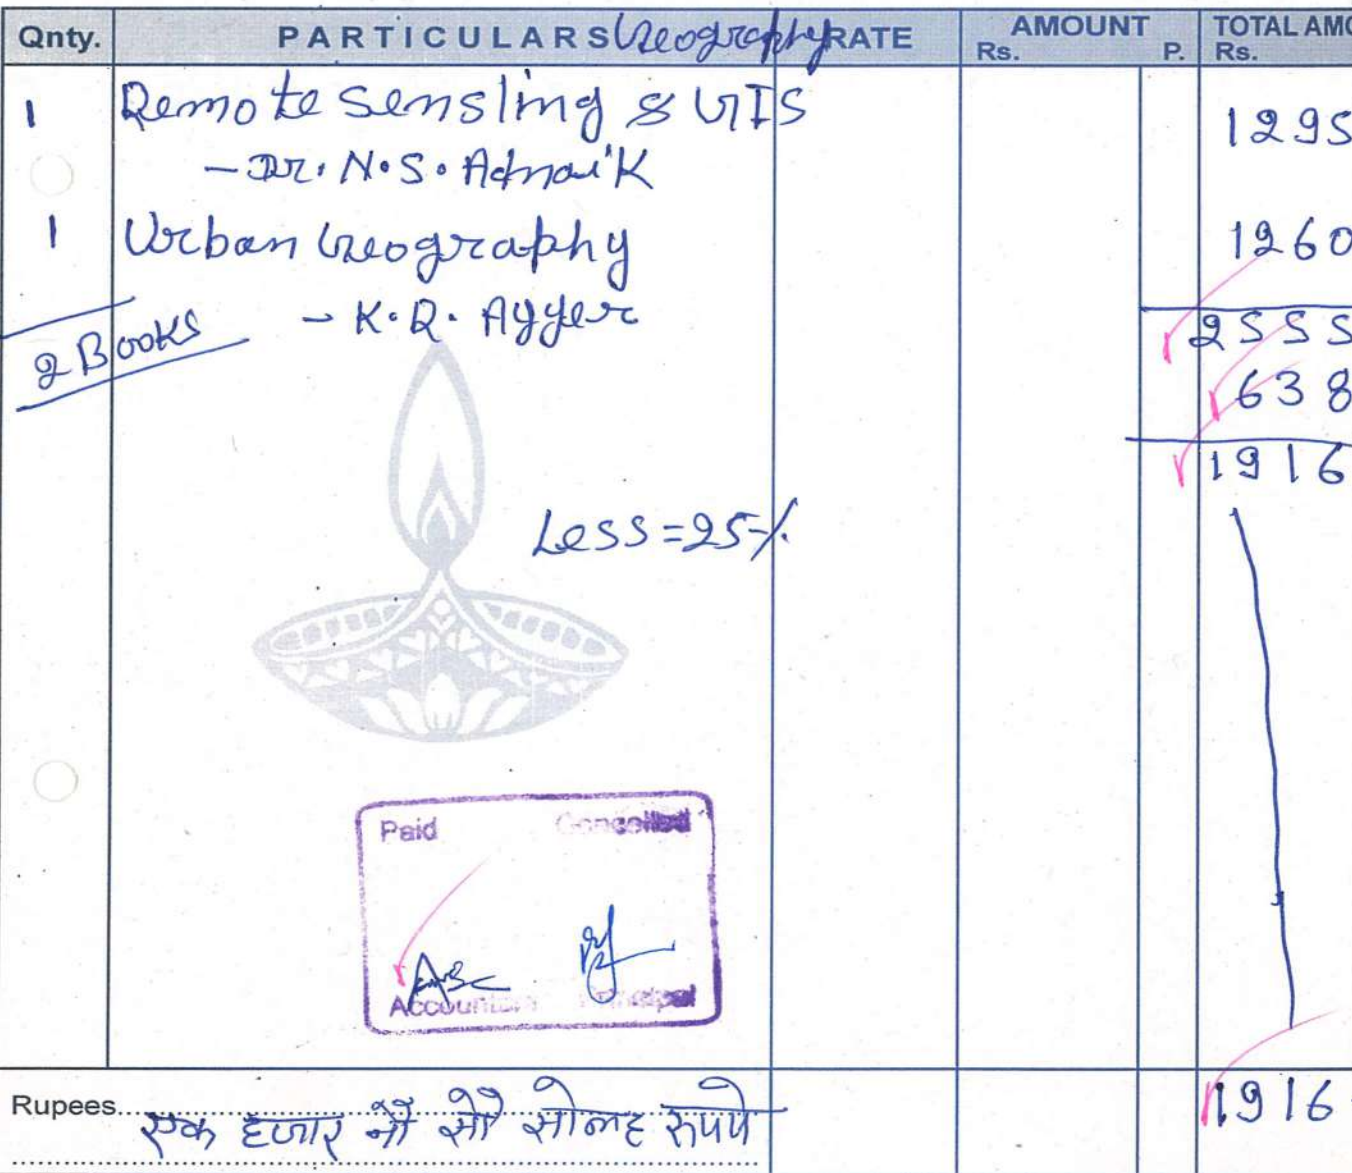 Qnty. PARTICULARS Geography RATE AMOUNT Rs. P. TOTAL AMO Rs.
1 Remote Sensling & GIS 1295
- Dr. N.S. Adnaik
1 Urban Geography 1260
- K.R. Ayyer
2 Books 2555
638
1916
Less = 25%
Paid Cancelled
Accountant Principal
Rupees एक हजार नौ सौ सोलह रुपये 1916